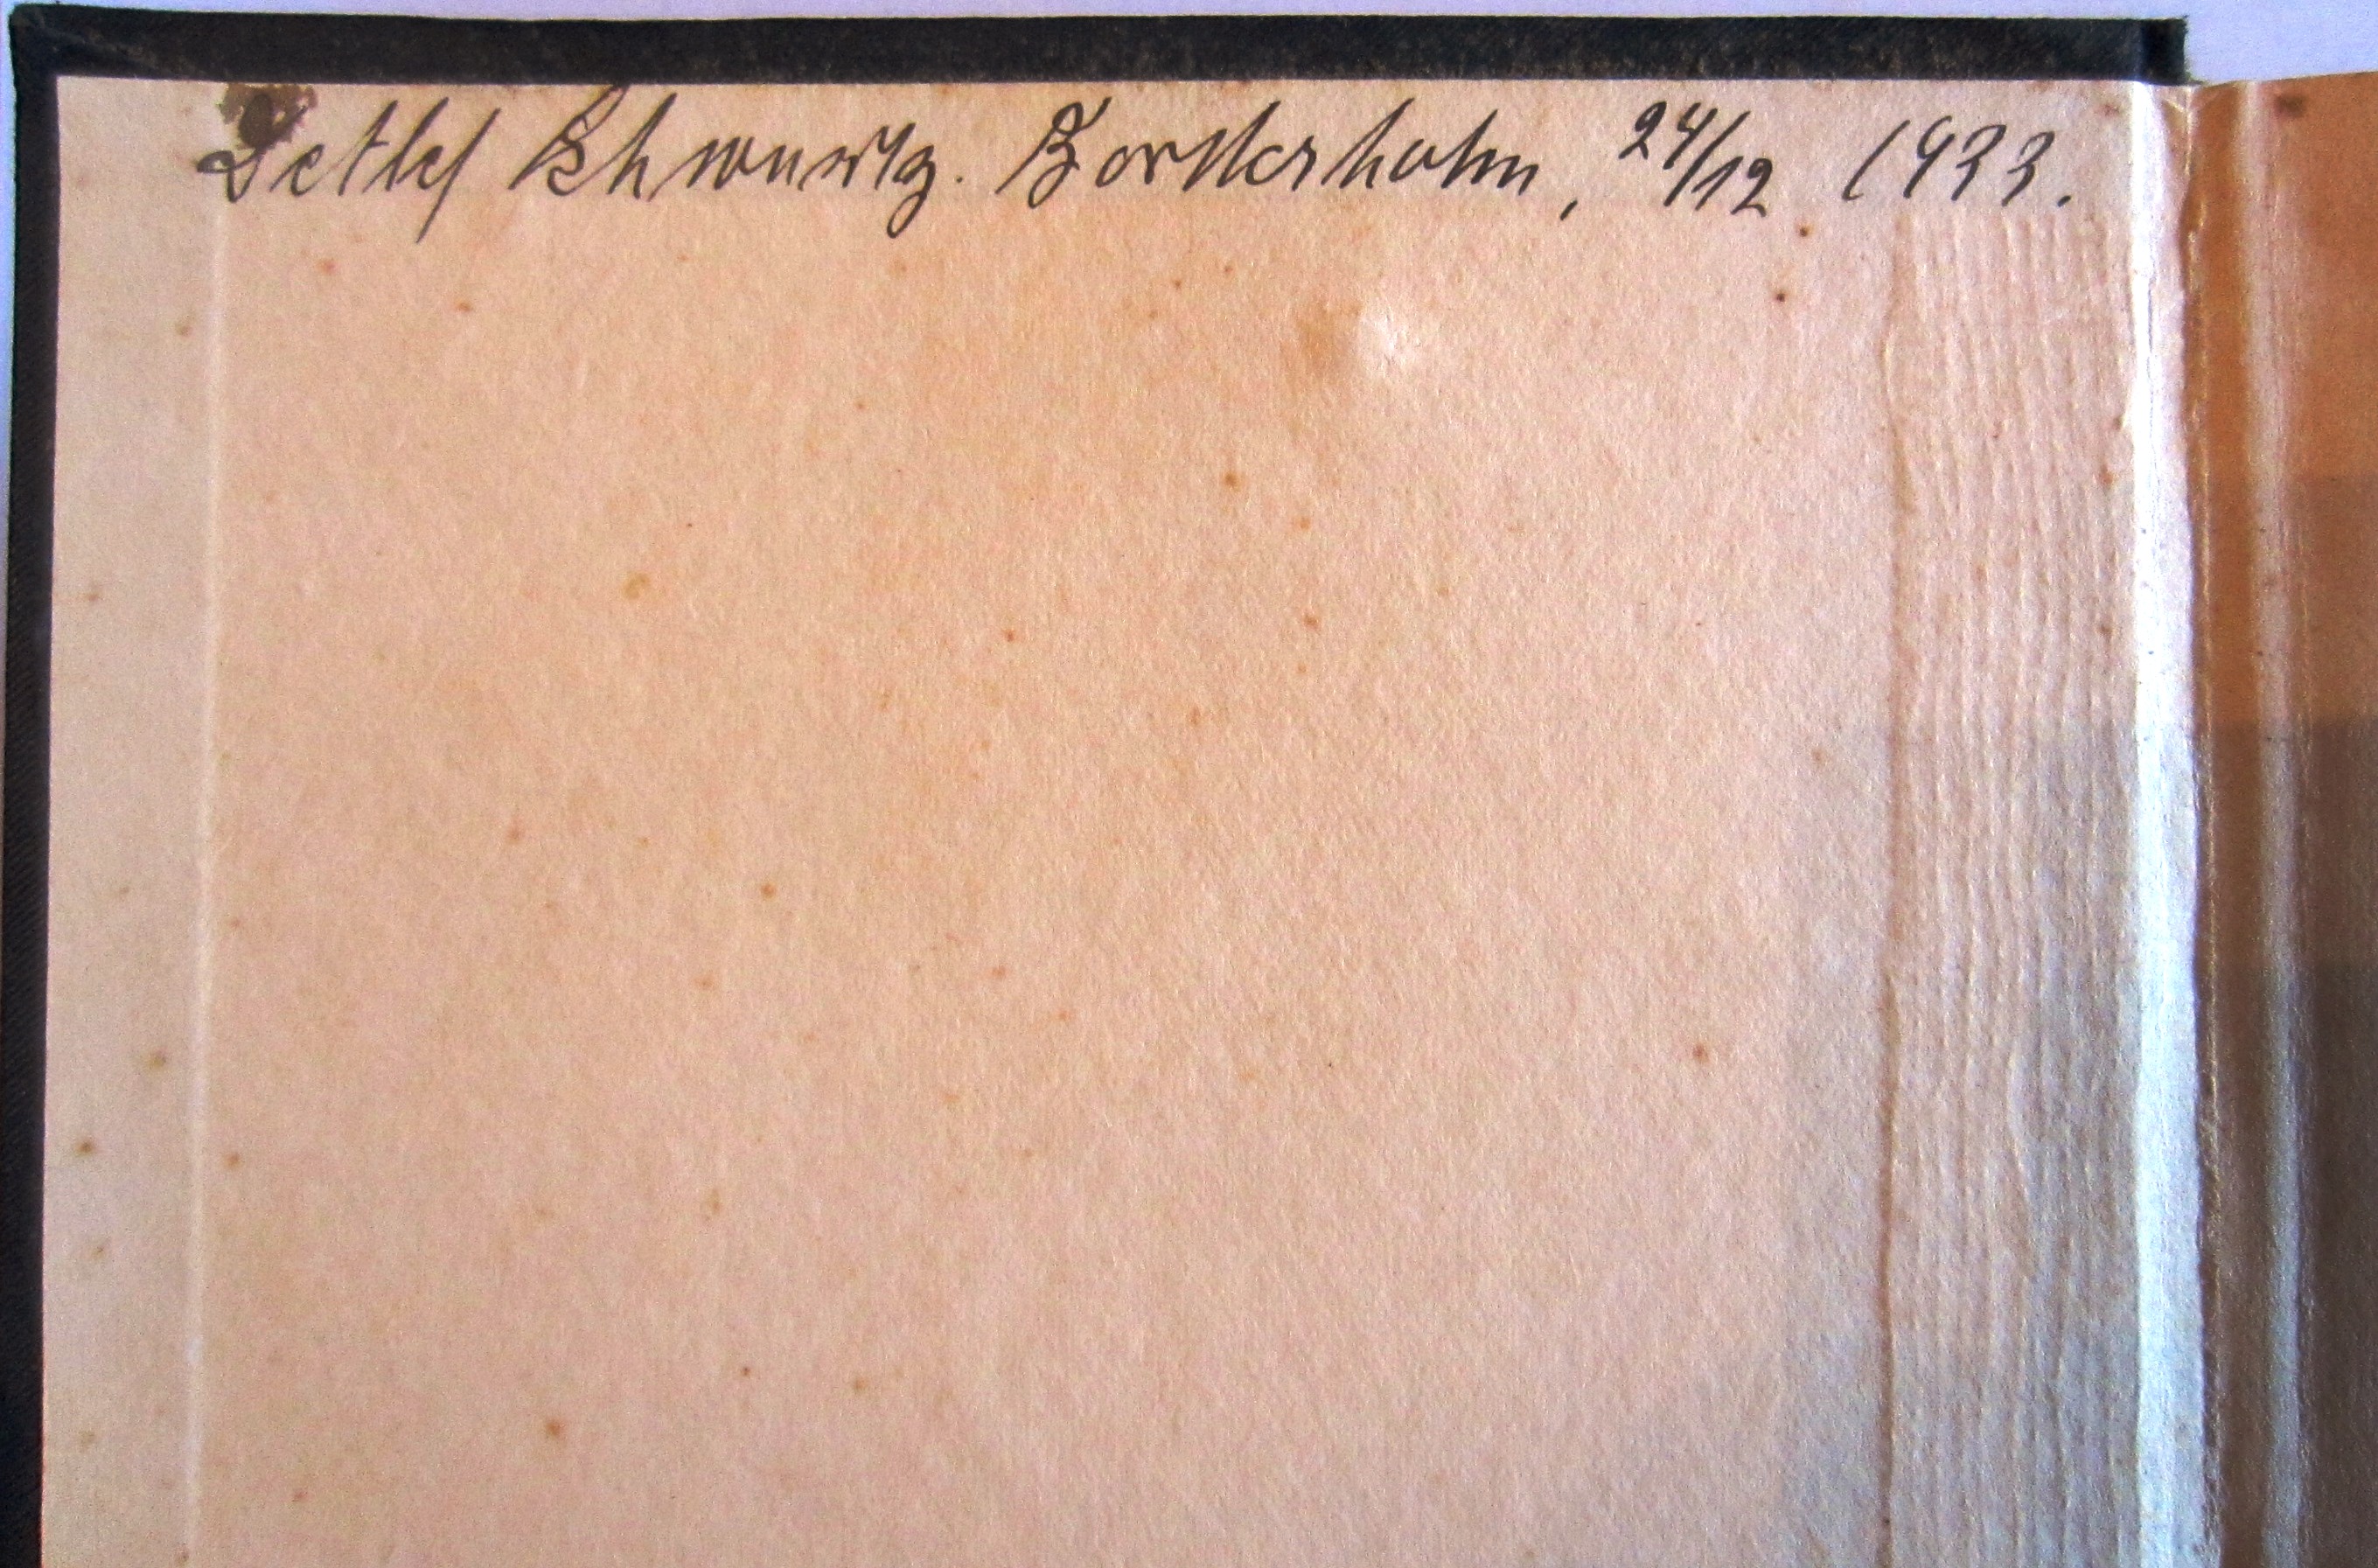 Detlef Bordesholm, 24/12 1933.